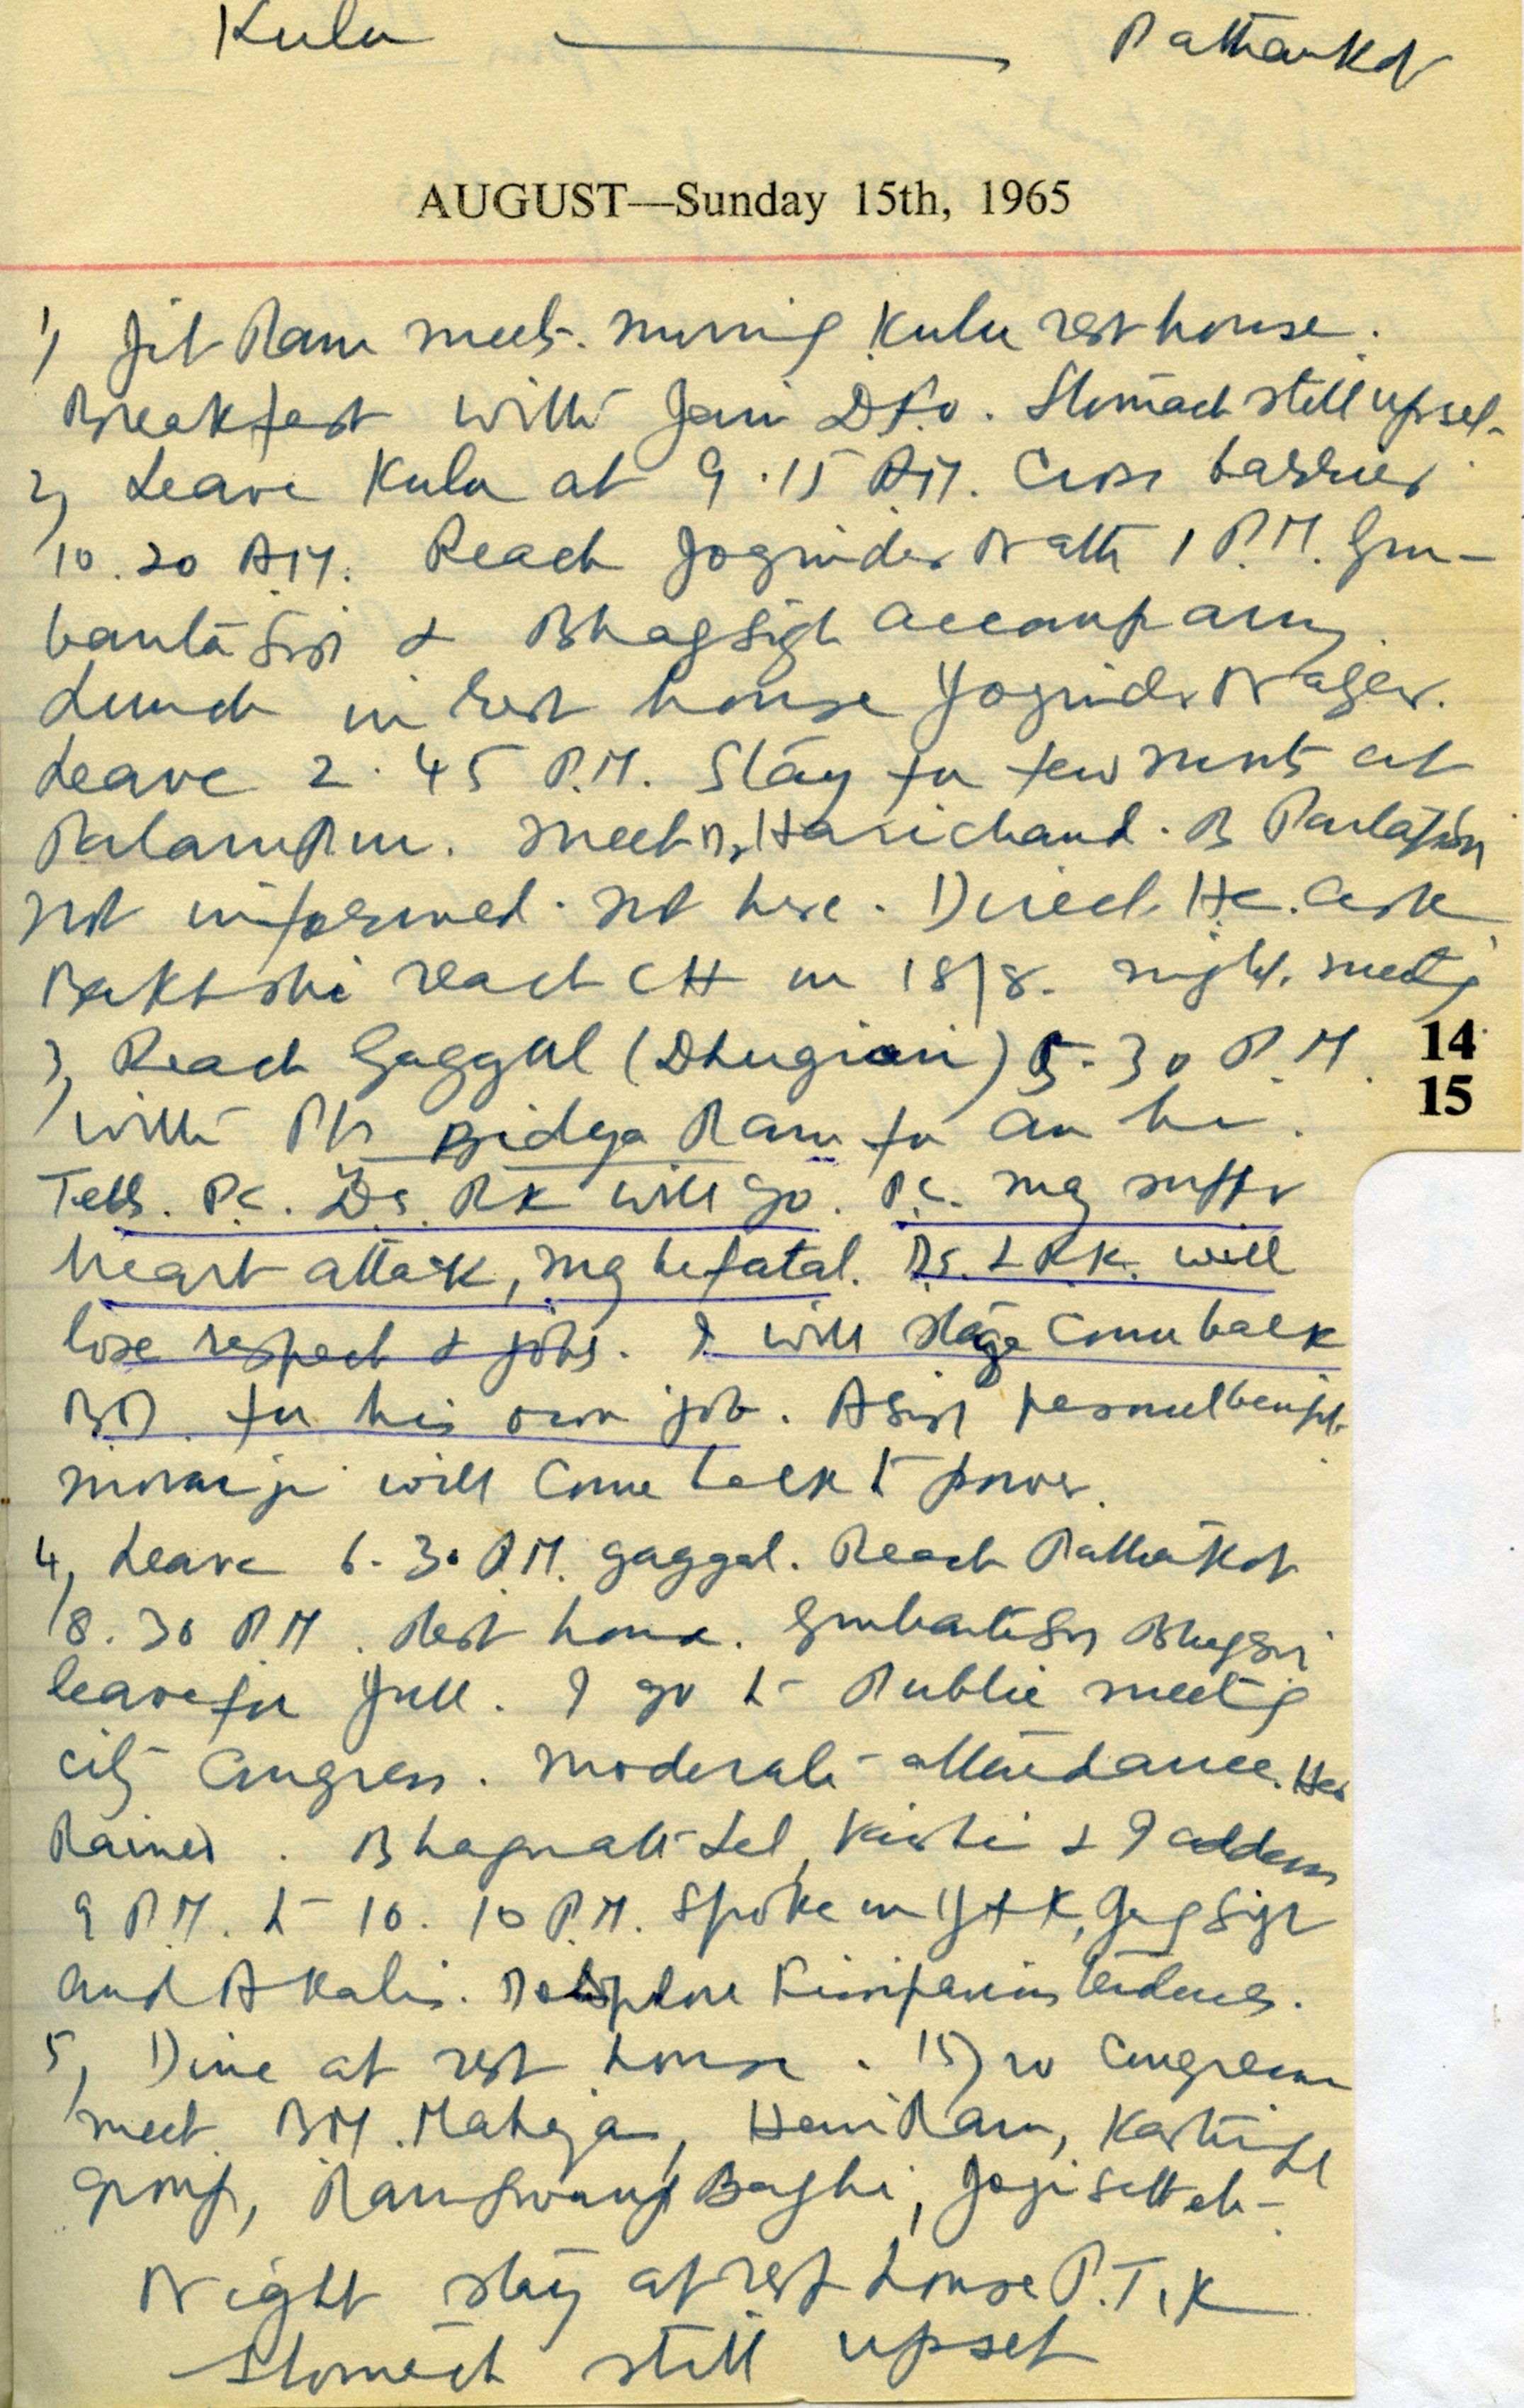 Kulu ——— Pathankot
AUGUST—Sunday 15th, 1965
1) Jit Ram meets morning Kulu rest house.
Breakfast with Jain D.F.O. Stomach still upset
2) Leave Kulu at 9.15 AM. Cross barrier
10.20 AM. Reach Joginder Nath 1 P.M. Gur-
banta Singh & Bhag Singh accompany.
Lunch in rest house Joginder Nager.
Leave 2.45 P.M. Stay for few munts at
Palampur. Meet Dr Harichand. B
not informed. Not here. Direct H.C. ask
Bakhshi reach CH on 18/8. night. meeting
3) Reach Gaggal (Dhugiari) 5.30 P.M.
14
15
with Pt Bidya Ram for an hr.
Tells. P.C. D.S. RK will go. P.C. may suffer
heart attack, may be fatal. D.S. & R.K. will
lose respect & jobs. I will stage come back
BD for his own job. Asist personel benifit
Morarji will come back to power.
4) Leave 6.30 P.M. gaggal. Reach Pathankot
8.30 P.M. Rest house. Gurbanta Singh Bhag Singh
leave for Jull. I go to Public meeting
city Congress. Moderate attendance. Has
Rained. Bhagnath Lal, & I address
9 P.M. to 10.10 P.M. Spoke on J & K, Jag Singh
and Akalis. tendences.
5) Dine at rest house. 15/20 Congressm
meet B.M. Mahajan, Hem Ram,
group, Ram Swarup Baghi, Jogi Seth etc-
Night stay at rest house P.T.K
Stomach still upset